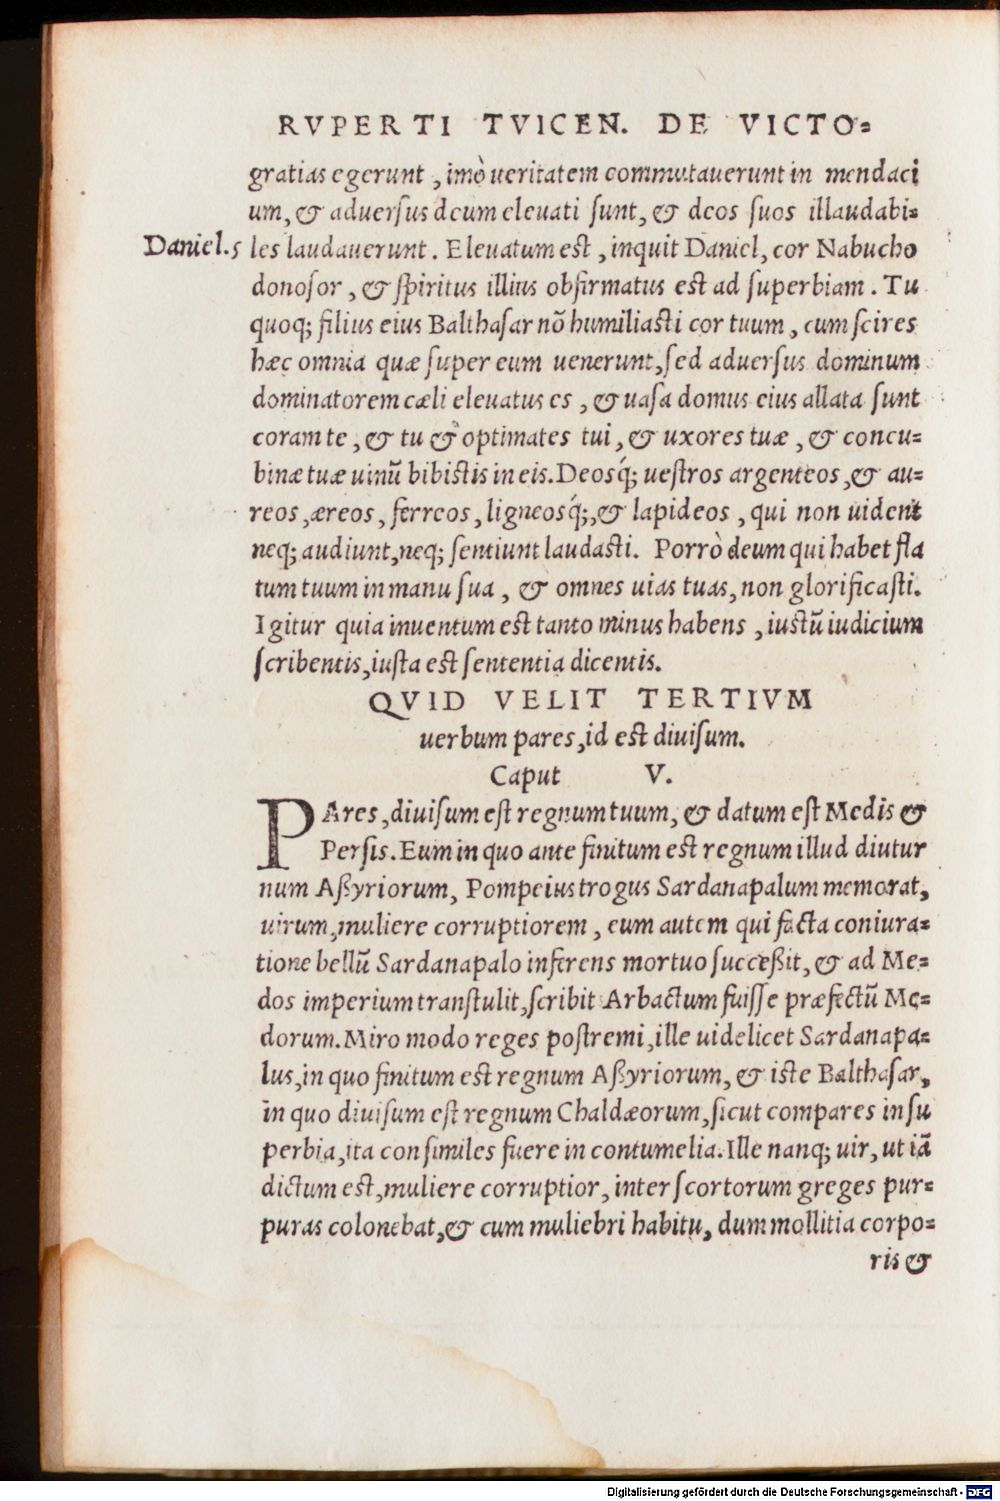 RVPERTI TVICEN. DE VICTO=
gratias egerunt, imò ueritatem commutauerunt in mendaci
um, & aduersus deum eleuati sunt, & deos suos illaudabi=
Daniel. 5 les laudauerunt. Eleuatum est, inquit Daniel, cor Nabucho
donosor, & spiritus illius obfirmatus est ad superbiam. Tu
quoq; filius eius Balthasar nõ humiliasti cor tuum, cum scires
hæc omnia quæ super eum uenerunt, sed aduersus dominum
dominatorem cæli eleuatus es, & uasa domus eius allata sunt
coram te, & tu & optimates tui, & uxores tuæ, & concu=
binæ tuæ uinũ bibistis in eis. Deosq́; uestros argenteos, & au=
reos, æreos, ferreos, ligneosq́;, & lapideos, qui non uident
neq; audiunt, neq; sentiunt laudasti. Porrò deum qui habet fla
tum tuum in manu sua, & omnes uias tuas, non glorificasti.
Igitur quia inuentum est tanto minus habens, iustũ iudicium
scribentis, iusta est sententia dicentis.
QVID VELIT TERTIVM
uerbum pares, id est diuisum.
Caput V.
PAres, diuisum est regnum tuum, & datum est Medis &
Persis. Eum in quo ante finitum est regnum illud diutur
num Aßyriorum, Pompeius trogus Sardanapalum memorat,
uirum, muliere corruptiorem, eum autem qui facta coniura=
tione bellũ Sardanapalo inferens mortuo succeßit, & ad Me=
dos imperium transtulit, scribit Arbactum fuisse præfectũ Me=
dorum. Miro modo reges postremi, ille uidelicet Sardanapa=
lus, in quo finitum est regnum Aßyriorum, & iste Balthasar,
in quo diuisum est regnum Chaldæorum, sicut compares in su
perbia, ita consimiles fuere in contumelia. Ille nanq; uir, ut iã
dictum est, muliere corruptior, inter scortorum greges pur=
puras colonebat, & cum muliebri habitu, dum mollitia corpo=
ris &
Digitalisierung gefördert durch die Deutsche Forschungsgemeinschaft - DFG